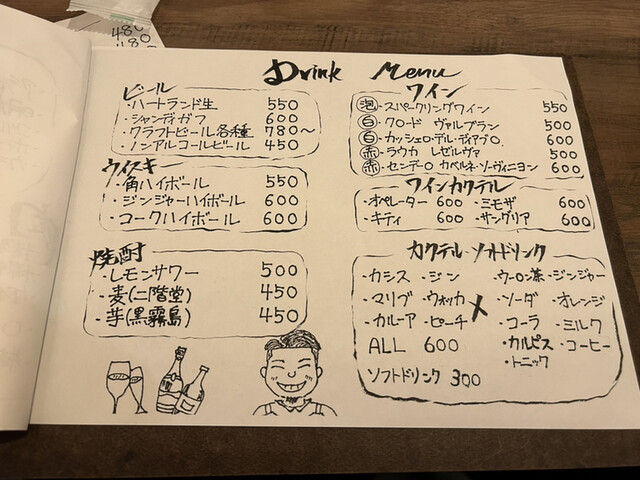 480
480
Drink Menu
ビール
・ハートランド生 550
・シャンディガフ 600
・クラフトビール各種 780〜
・ノンアルコールビール 450
ウイスキー
・角ハイボール 550
・ジンジャーハイボール 600
・コークハイボール 600
焼酎
・レモンサワー 500
・麦(二階堂) 450
・芋(黒霧島) 450
ワイン
泡・スパークリングワイン 550
白・クロード ヴァルブラン 500
白・カッシェロ・デル・ディアブロ 600
赤・ラウカ レゼルヴァ 500
赤・センデーロ カベルネ・ソーヴィニヨン 600
ワインカクテル
・オペレーター 600 ・ミモザ 600
・キティ 600 ・サングリア 600
カクテル・ソフトドリンク
・カシス ・ジン
・マリブ ・ウォッカ
・カルーア ・ピーチ
×
・ウーロン茶 ・ジンジャー
・ソーダ ・オレンジ
・コーラ ・ミルク
・カルピス ・コーヒー
・トニック
ALL 600
ソフトドリンク 300